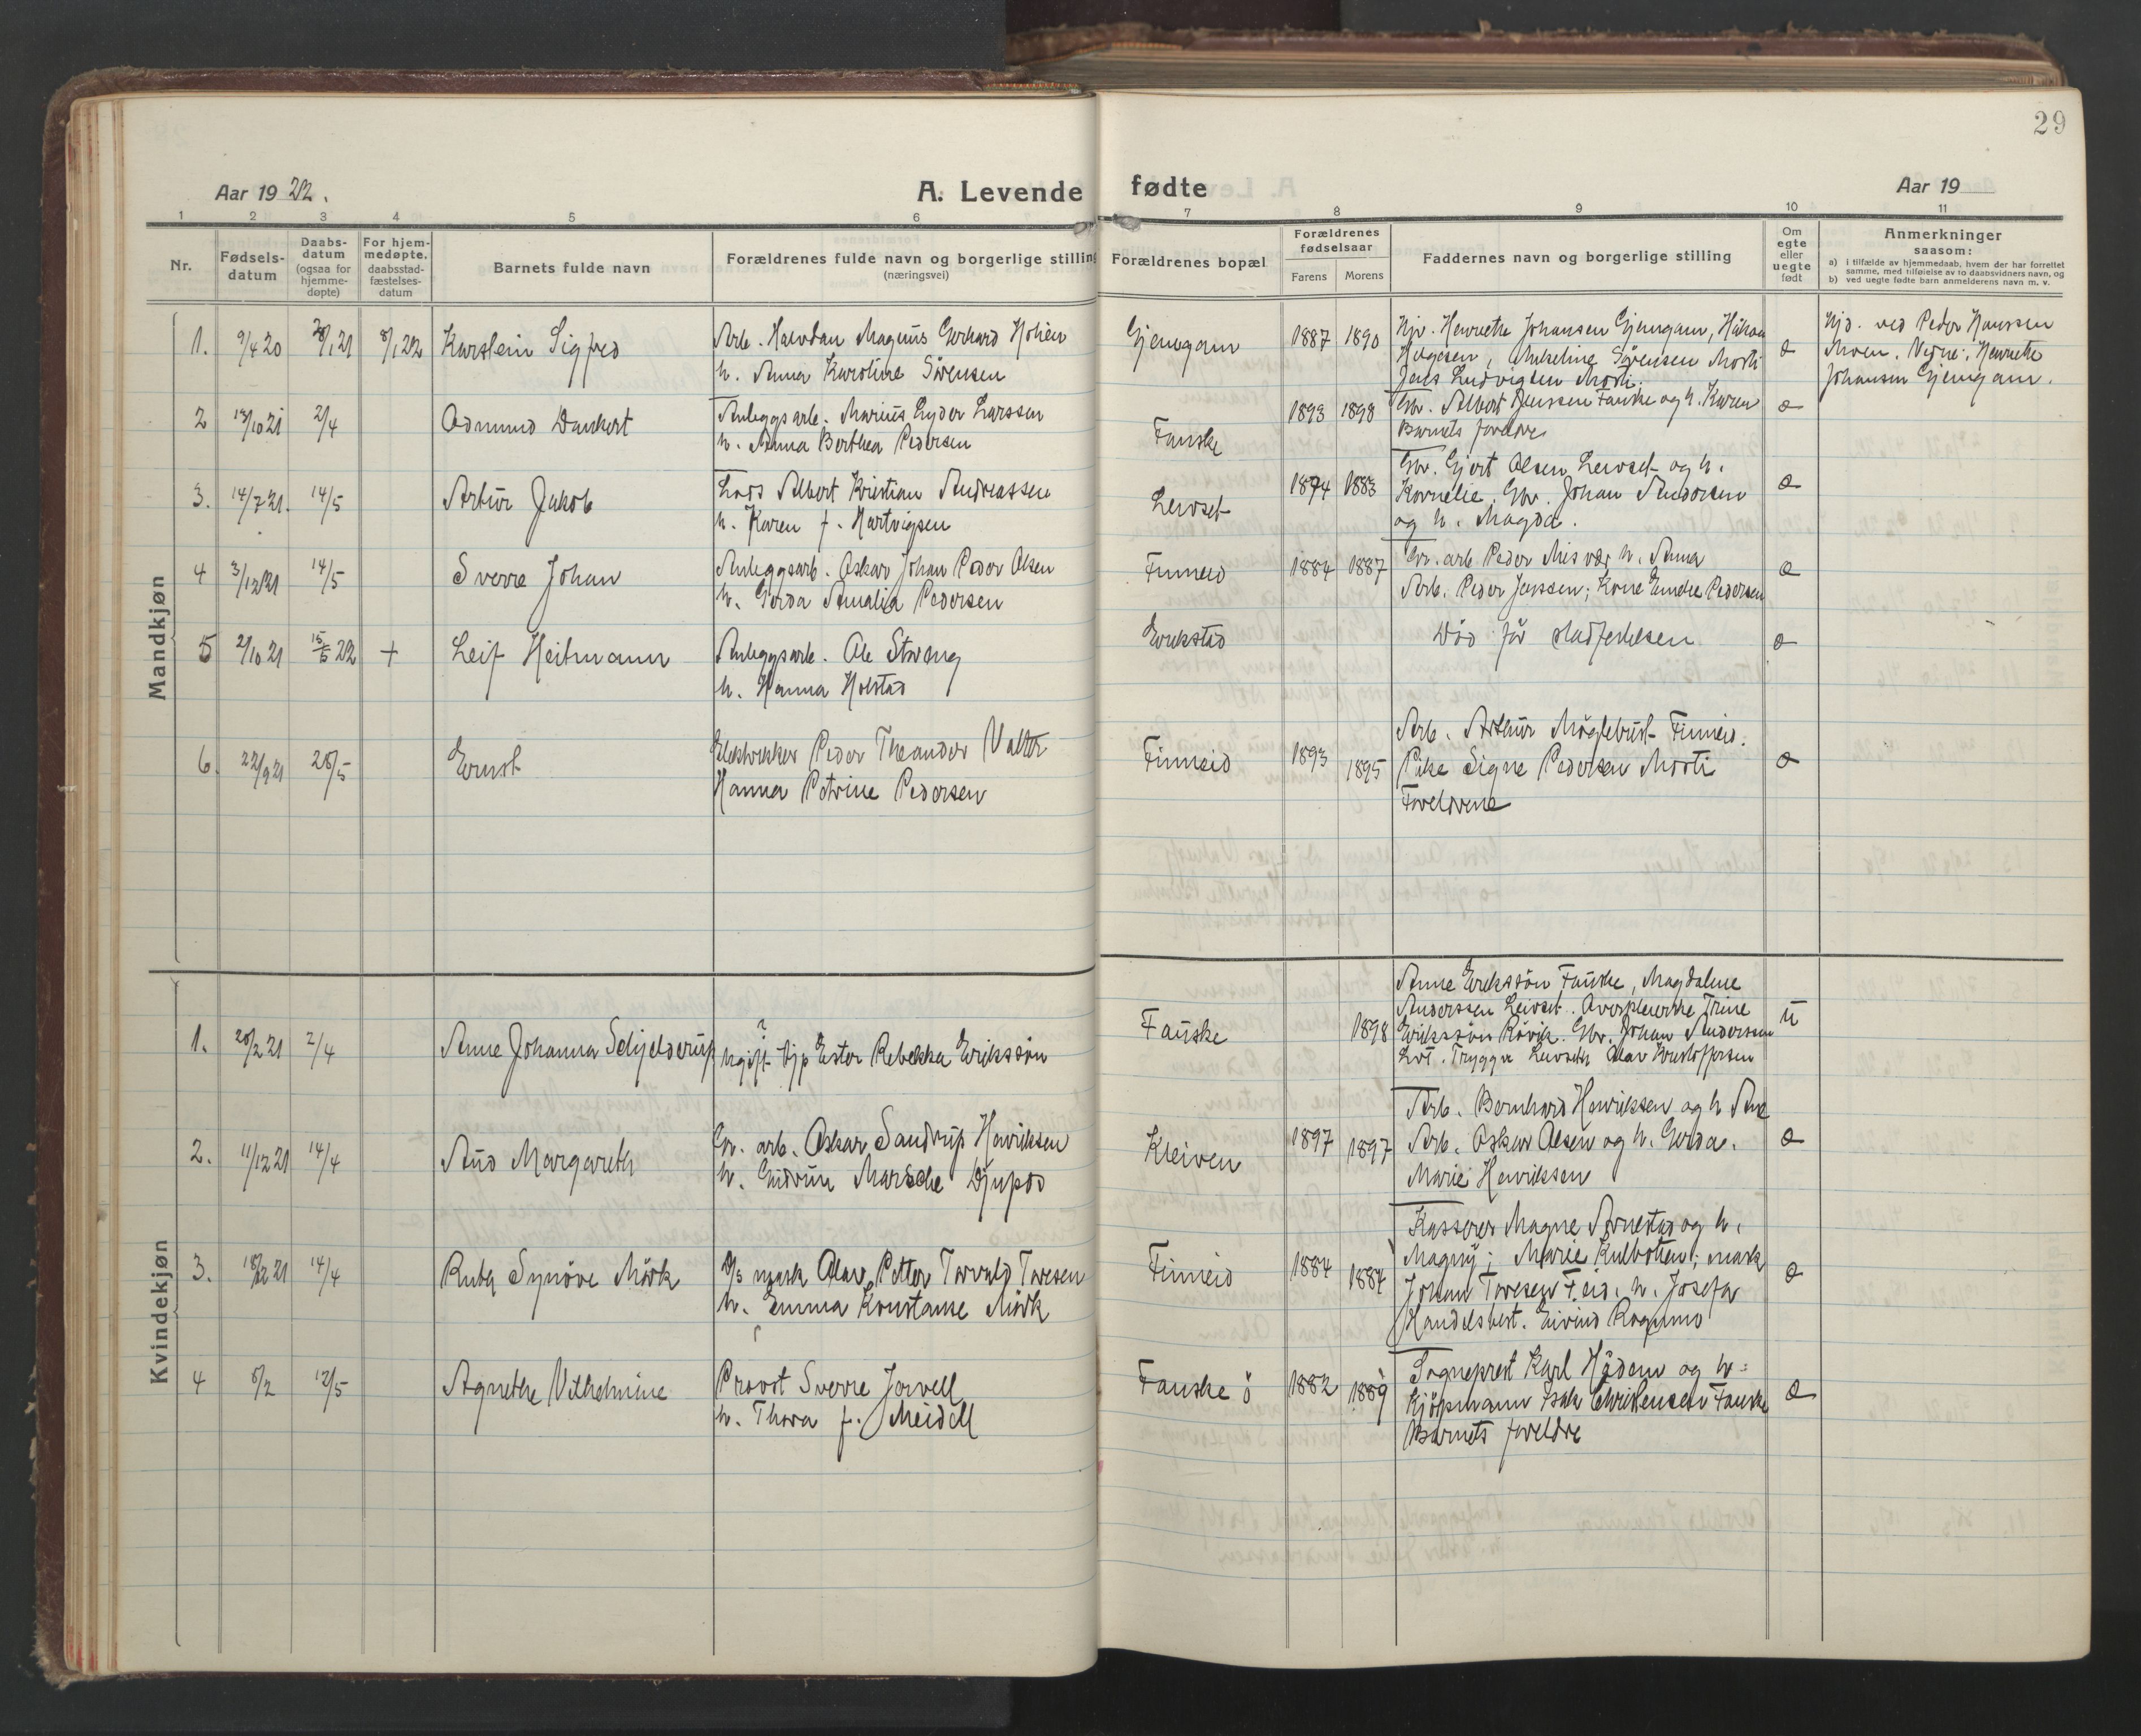 29
Aar 1922.
A. Levende fødte
Aar 19
1 2 3 4 5 6 7 8 9 10 11
Nr.
Fødsels-
datum
Daabs-
datum
(ogsaa for
hjemme-
døpte)
For hjem-
medøpte.
daabsstad-
fæstelses-
datum
Barnets fulde navn
Forældrenes fulde navn og borgerlige stilling
(næringsvei)
Forældrenes bopæl
Forældrenes
fødselsaar
Farens Morens
Faddernes navn og borgerlige stilling
Om
egte
eller
uegte
født
Anmerkninger
saasom:
a) i tilfælde av hjemmedaab, hvem der har forrettet
samme, med tilføielse av to daabsvidners navn, og
b) ved uegte fødte barn anmelderens navn m. v.
Mandkjøn
1. 9/4 20 8/1 22 Karstein Sigfred
Arb. Halvdan Magnus Gerhard
h. Anna Karoline Sørensen
Gjemgam 1887 1890
Hjv. Henrette Johansen Gjemgam, Håkon
Helgesen, Sørensen Mosti
Jens Ludvigsen Mosti.
e
Hjd. ved Peder Hanssen
Moen. Henrette
Johansen Gjemgam.
2 13/10 21 2/4 Odmund Dankert
Anleggsarb. Marius Lyder Larssen
h. Anna Berthea Pedersen
Fauske 1893 1898
Gbr. Albert Jenssen Fauske og h. Karen
Barnets foreldre
e
3. 14/7 21. 14/5 Artur Jakob
Lods Albert Kristian Andreassen
h. Karen f. Hartvigsen
Leivset 1874 1883
Gbr. Gjert Olsen Leivset og h.
Kornelie. Gbr. Johan Andersen
og h. Magda.
e
4 3/12 21 14/5 Sverre Johan
Anleggsarb. Oskar Johan Peder Olsen
h. Gerda Amalia Pedersen
Finneid 1884 1887
Gr. arb. Peder Misvær, h. Anna
Arb. Peder Jenssen; Kone Pedersen
e
5 2/10 21 15/5 22 + Leif Heitmann
Anleggsarb. Ole Strang
h. Hanna Holstad
Erikstad
Död för stadfestelsen
e
6. 22/9 21 28/5 Ernst
Peder Theander Valter
Hanna Petrine Pedersen
Finneid 1893 1895
Arb. Arthur Møglebust Finneid.
Pike Signe Pedersen Mosti
Foreldrene
e
Kvindekjøn
1. 28/2 21 2/4 Anne Johanna Schjelderup
?
Ugift tjp Ester Rebekka Erikssøn
Fauske 1898
Anne Erikssøn Fauske, Magdalene
Anderssen Leivset. Trine
Erikssøn Røvik. Gbr. Johan Anderssen
Lvt. Tryggve Leivseth Olav Kristoffersen
u
2. 11/12 21 14/4 Aud Margareth
Gr. arb. Oskar Sandrup Henriksen
h. Gudrun Djupos
Kleiven 1897 1897
Arb. Bernhard Henriksen og h. Ane
Arb. Oskar Olsen og h. Gerda.
Marie Henriksen
e
3. 18/12 21 14/4 Ruth Synöve Mörk
D/s mask Olav Petter Torvald Toresen
h. Emma Konstanse Mörk
Finneid 1884 1884
Kasserer Magne Arnestad og h.
Magny; Marie Kulbotten; mask
Johan Toresen F.eid. h. Josefa
Handelsbest. Eivind Rognmo
e
4 8/2 12/5 Agnethe Vilhelmine
Provst Sverre Jervell
h. Thora f. Meidell
Fauske ö 1882 1889
Sogneprest Karl Hådem og h:
Kjöpmann Isak Christensen Fauske
Barnets foreldre
e